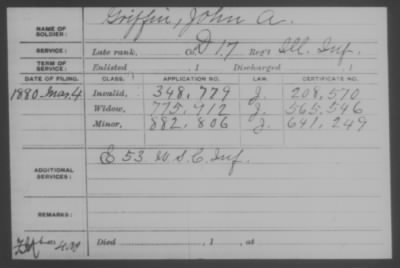 NAME OF SOLDIER: Griffin, John A.
SERVICE: Late rank, Co. D 17 Reg't Ill. Inf.
TERM OF SERVICE: Enlisted , 1 Discharged , 1
DATE OF FILING. CLASS. APPLICATION NO. LAW. CERTIFICATE NO.
1880 Mar. 4 Invalid, 348,779 J. 208,570
Widow, 775,912 J. 565,546
Minor, 882,806 J. 641,249
ADDITIONAL SERVICES: E 53 U.S.C. Inf.
REMARKS:
Died , 1 , at